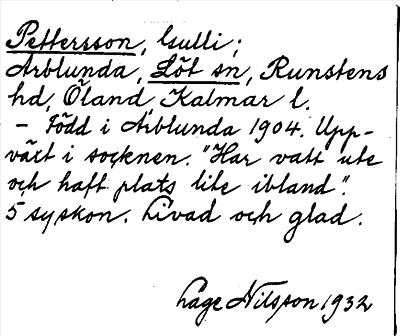 Pettersson, Gulli;
Arblunda, Löt sn, Runstens
hd, Öland, Kalmar l.
– Född i Arblunda 1904. Upp-
växt i socknen. "Har vatt ute
och haft plats lite ibland".
5 syskon. Livad och glad.
Lage Nilsson 1932